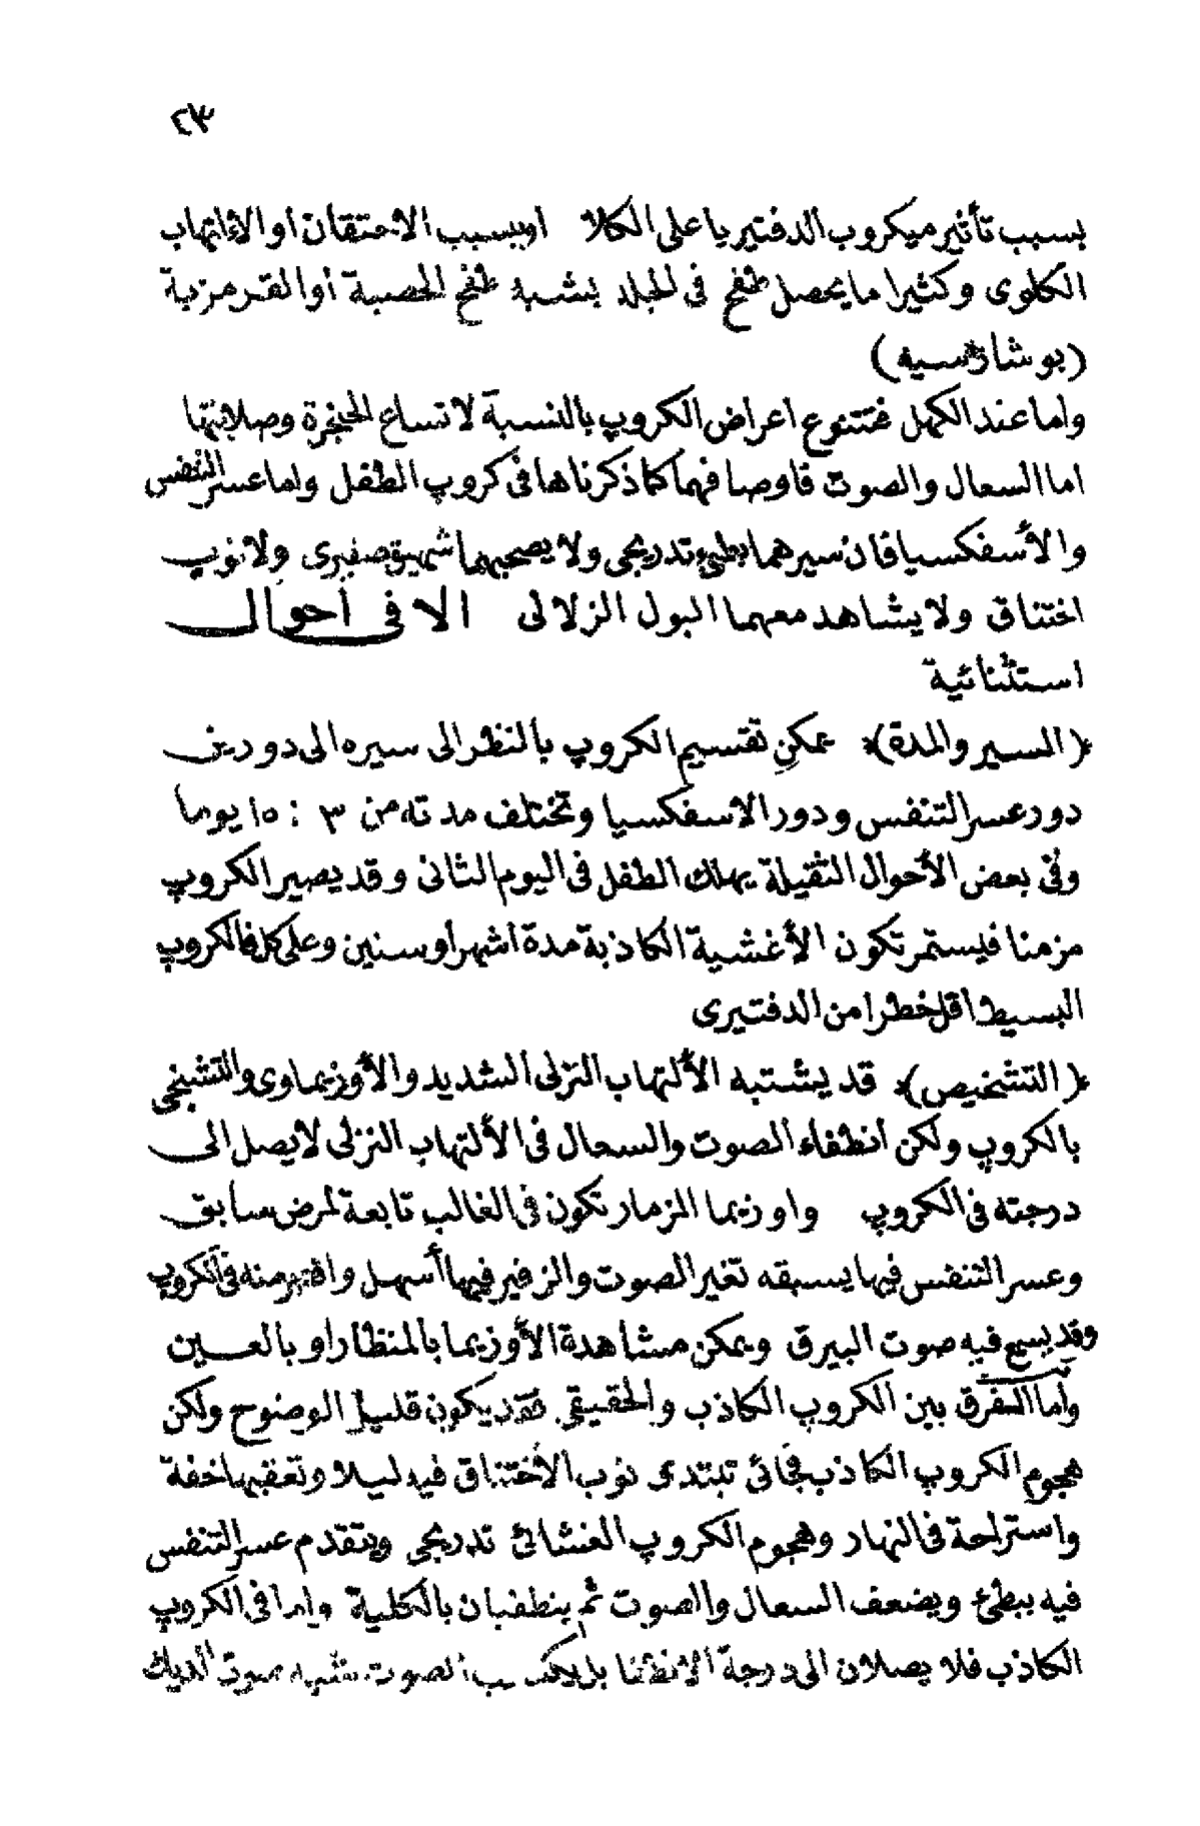 ٢٣
بسبب تأثير ميكروب الدفتيريا على الكلا اوبسبب الاحتقان او الالتهاب
الكلوى وكثيرا ما يحصل طفح فى الجلد يشبه طفح الحصبة أو القرمزية
(بوشاردسيه)
واما عند الكهل فتتنوع اعراض الكروب بالنسبة لاتساع الحنجرة وصلابتها
اما السعال والصوت فاوصافهما كما ذكرناها فى كروب الطفل واما عسر التنفس
والأسفكسيا فان سيرهما بطئ تدريجى ولا يصحبهما شهيق صفيرى ولا نوب
اختناق ولا يشاهد معهما البول الزلالى الا فى أحوال
استثنائية
﴿السير والمدة﴾ يمكن تقسيم الكروب بالنظر الى سيره الى دورين
دور عسر التنفس ودور الاسفكسيا وتختلف مدته من ٣ : ١٥ يوما
وفى بعض الأحوال الثقيلة يهلك الطفل فى اليوم الثانى وقد يصير الكروب
مزمنا فيستمر تكون الأغشية الكاذبة مدة اشهر أو سنين وعلى كل فالكروب
البسيط اقل خطرا من الدفتيرى
﴿التشخيص﴾ قد يشتبه الألتهاب النزلى الشديد والأوزيماوى والتشنجى
بالكروب ولكن انطفاء الصوت والسعال فى الألتهاب النزلى لا يصل الى
درجته فى الكروب واوزيما المزمار تكون فى الغالب تابعة لمرض سابق
وعسر التنفس فيها يسبقه تغير الصوت والزفير فيها أسهل واقتهر منه فى الكروب
وقد يسمع فيه صوت البيرق ويمكن مشاهدة الأوزيما بالمنظار او بالعين
وأما التفرق بين الكروب الكاذب والحقيقى فقد يكون قليل الوضوح ولكن
هجوم الكروب الكاذب فجائى تبتدى نوب الأختناق فيه ليلا وتعقبها خفة
واستراحة فى النهار وهجوم الكروب الغشائى تدريجى ويتقدم عسر التنفس
فيه ببطئ ويضعف السعال والصوت ثم ينطفيان بالكلية واما فى الكروب
الكاذب فلا يصلان الى درجة الانطفا بل يكتسب الصوت شبه صوت الديك